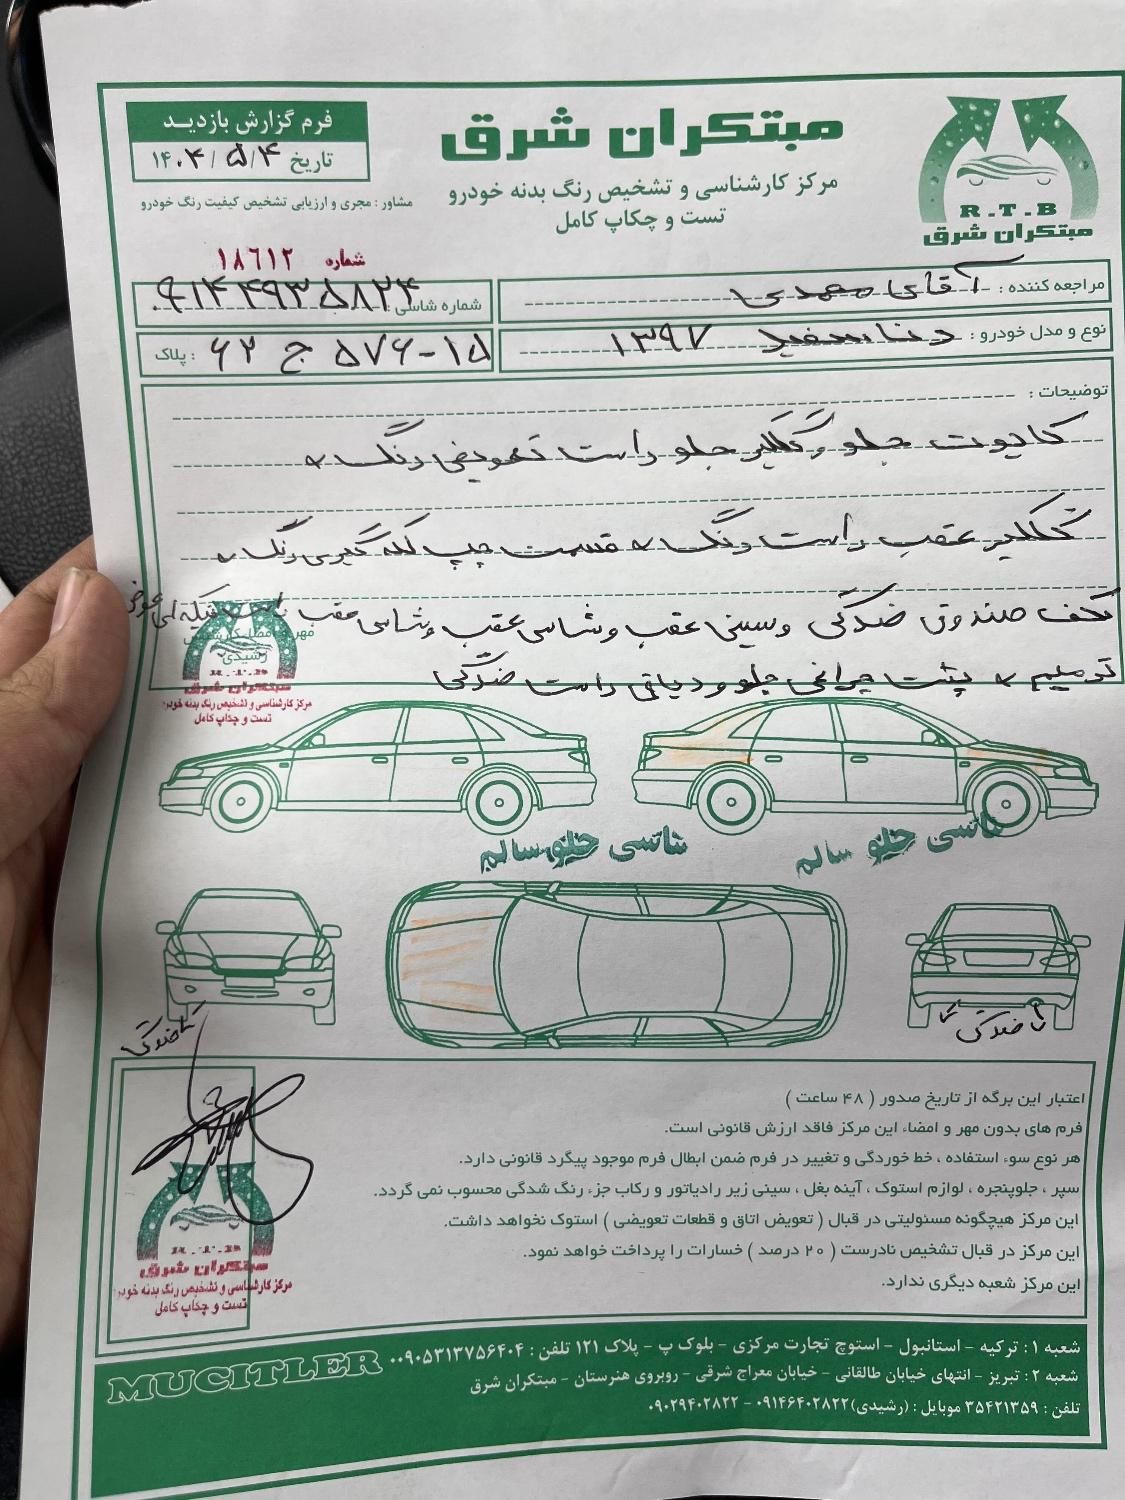 فرم گزارش بازدید
تاریخ ۱۴۰۴/۵/۴
مبتکران شرق
مرکز کارشناسی و تشخیص رنگ بدنه خودرو
تست و چکاپ کامل
R.T.B
مبتکران شرق
مشاور : مجری و ارزیابی تشخیص کیفیت رنگ خودرو
شماره ۱۸۶۱۲
مراجعه کننده : آقای مهدی
شماره شاسی :
نوع و مدل خودرو : دنا سفید ۱۳۹۷
پلاک : ۶۲ ج ۵۷۶-۱۵
توضیحات :
کاپوت جلو و گلگیر جلو راست تعویض رنگ
گلگیر عقب راست رنگ قسمت چپ لکه گیری رنگ
کف صندوق ضدگی و سینی عقب و شاسی عقب و شاسی عقب
ترمیم پشت چراغی جلو و دیاقی راست ضدگی
رشیدی
مبتکران شرق
مرکز کارشناسی و تشخیص رنگ بدنه خودرو
تست و چکاپ کامل
شاسی جلو سالم
شاسی جلو سالم
ضدگی
ضدگی
اعتبار این برگه از تاریخ صدور ( ۴۸ ساعت )
فرم های بدون مهر و امضاء این مرکز فاقد ارزش قانونی است.
هر نوع سوء استفاده ، خط خوردگی و تغییر در فرم ضمن ابطال فرم موجود پیگرد قانونی دارد.
سپر ، جلوپنجره ، لوازم استوک ، آینه بغل ، سینی زیر رادیاتور و رکاب جزء رنگ شدگی محسوب نمی گردد.
این مرکز هیچگونه مسئولیتی در قبال ( تعویض اتاق و قطعات تعویضی ) استوک نخواهد داشت.
این مرکز در قبال تشخیص نادرست ( ۲۰ درصد ) خسارات را پرداخت خواهد نمود.
این مرکز شعبه دیگری ندارد.
R.T.B
مبتکران شرق
مرکز کارشناسی و تشخیص رنگ بدنه خودرو
تست و چکاپ کامل
شعبه ۱ : ترکیه - استانبول - استوچ تجارت مرکزی - بلوک پ - پلاک ۱۲۱ تلفن : ۰۰۹۰۵۳۱۳۷۵۶۴۰۴
شعبه ۲ : تبریز - انتهای خیابان طالقانی - خیابان معراج شرقی - روبروی هنرستان - مبتکران شرق
تلفن : ۳۵۴۲۱۳۵۹ موبایل : (رشیدی) ۰۹۱۴۶۴۰۲۸۲۲ - ۰۹۰۲۹۴۰۲۸۲۲
MUCITLER